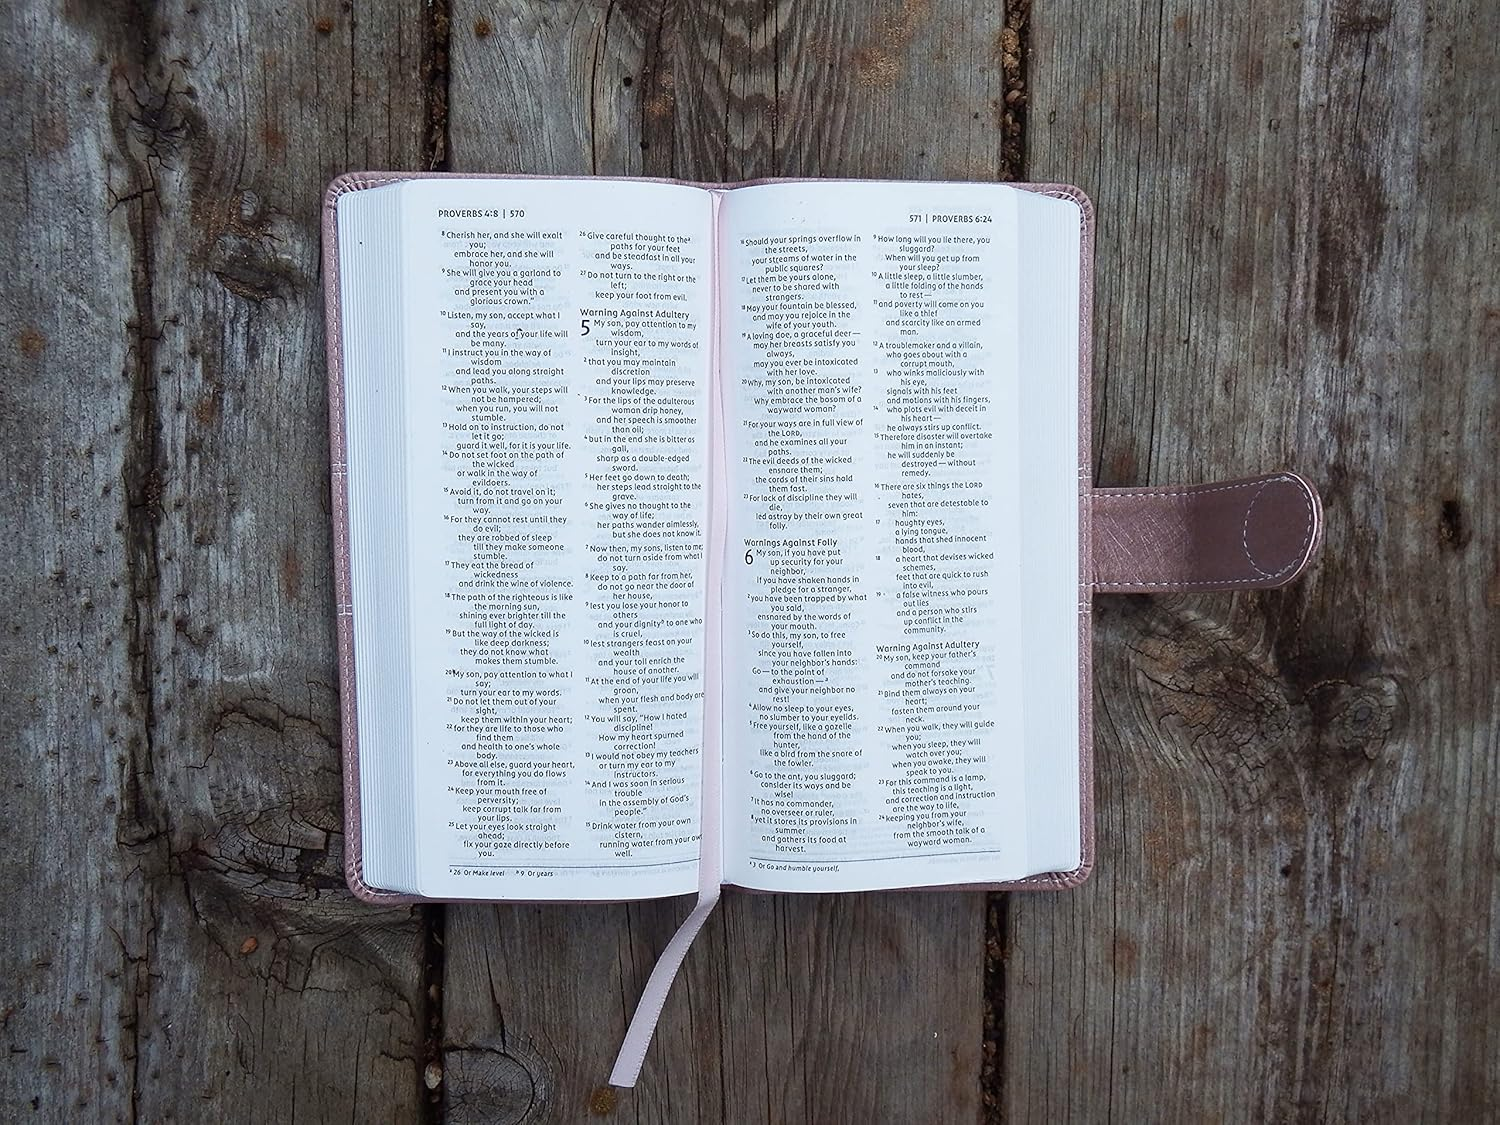 PROVERBS 4:8 | 570
8 Cherish her, and she will exalt
you;
embrace her, and she will
honor you.
9 She will give you a garland to
grace your head
and present you with a
glorious crown."
10 Listen, my son, accept what I
say,
and the years of your life will
be many.
11 I instruct you in the way of
wisdom
and lead you along straight
paths.
12 When you walk, your steps will
not be hampered;
when you run, you will not
stumble.
13 Hold on to instruction, do not
let it go;
guard it well, for it is your life.
14 Do not set foot on the path of
the wicked
or walk in the way of
evildoers.
15 Avoid it, do not travel on it;
turn from it and go on your
way.
16 For they cannot rest until they
do evil;
they are robbed of sleep
till they make someone
stumble.
17 They eat the bread of
wickedness
and drink the wine of violence.
18 The path of the righteous is like
the morning sun,
shining ever brighter till the
full light of day.
19 But the way of the wicked is
like deep darkness;
they do not know what
makes them stumble.
20 My son, pay attention to what I
say;
turn your ear to my words.
21 Do not let them out of your
sight,
keep them within your heart;
22 for they are life to those who
find them
and health to one's whole
body.
23 Above all else, guard your heart,
for everything you do flows
from it.
24 Keep your mouth free of
perversity;
keep corrupt talk far from
your lips.
25 Let your eyes look straight
ahead;
fix your gaze directly before
you.
26 Give careful thought to the a
paths for your feet
and be steadfast in all your
ways.
27 Do not turn to the right or the
left;
keep your foot from evil.
Warning Against Adultery
5 My son, pay attention to my
wisdom,
turn your ear to my words of
insight,
2 that you may maintain
discretion
and your lips may preserve
knowledge.
3 For the lips of the adulterous
woman drip honey,
and her speech is smoother
than oil;
4 but in the end she is bitter as
gall,
sharp as a double-edged
sword.
5 Her feet go down to death;
her steps lead straight to the
grave.
6 She gives no thought to the
way of life;
her paths wander aimlessly,
but she does not know it.
7 Now then, my sons, listen to me;
do not turn aside from what I
say.
8 Keep to a path far from her,
do not go near the door of
her house,
9 lest you lose your honor to
others
and your dignity b to one who
is cruel,
10 lest strangers feast on your
wealth
and your toil enrich the
house of another.
11 At the end of your life you will
groan,
when your flesh and body are
spent.
12 You will say, "How I hated
discipline!
How my heart spurned
correction!
13 I would not obey my teachers
or turn my ear to my
instructors.
14 And I was soon in serious
trouble
in the assembly of God's
people."
15 Drink water from your own
cistern,
running water from your own
well.
a 26 Or Make level b 9 Or years
571 | PROVERBS 6:24
16 Should your springs overflow in
the streets,
your streams of water in the
public squares?
17 Let them be yours alone,
never to be shared with
strangers.
18 May your fountain be blessed,
and may you rejoice in the
wife of your youth.
19 A loving doe, a graceful deer—
may her breasts satisfy you
always,
may you ever be intoxicated
with her love.
20 Why, my son, be intoxicated
with another man's wife?
Why embrace the bosom of a
wayward woman?
21 For your ways are in full view of
the LORD,
and he examines all your
paths.
22 The evil deeds of the wicked
ensnare them;
the cords of their sins hold
them fast.
23 For lack of discipline they will
die,
led astray by their own great
folly.
Warnings Against Folly
6 My son, if you have put
up security for your
neighbor,
if you have shaken hands in
pledge for a stranger,
2 you have been trapped by what
you said,
ensnared by the words of
your mouth.
3 So do this, my son, to free
yourself,
since you have fallen into
your neighbor's hands:
Go—to the point of
exhaustion— a
and give your neighbor no
rest!
4 Allow no sleep to your eyes,
no slumber to your eyelids.
5 Free yourself, like a gazelle
from the hand of the
hunter,
like a bird from the snare of
the fowler.
6 Go to the ant, you sluggard;
consider its ways and be
wise!
7 It has no commander,
no overseer or ruler,
8 yet it stores its provisions in
summer
and gathers its food at
harvest.
9 How long will you lie there, you
sluggard?
When will you get up from
your sleep?
10 A little sleep, a little slumber,
a little folding of the hands
to rest—
11 and poverty will come on you
like a thief
and scarcity like an armed
man.
12 A troublemaker and a villain,
who goes about with a
corrupt mouth,
13 who winks maliciously with
his eye,
signals with his feet
and motions with his fingers,
14 who plots evil with deceit in
his heart—
he always stirs up conflict.
15 Therefore disaster will overtake
him in an instant;
he will suddenly be
destroyed—without
remedy.
16 There are six things the LORD
hates,
seven that are detestable to
him:
17 haughty eyes,
a lying tongue,
hands that shed innocent
blood,
18 a heart that devises wicked
schemes,
feet that are quick to rush
into evil,
19 a false witness who pours
out lies
and a person who stirs
up conflict in the
community.
Warning Against Adultery
20 My son, keep your father's
command
and do not forsake your
mother's teaching.
21 Bind them always on your
heart;
fasten them around your
neck.
22 When you walk, they will guide
you;
when you sleep, they will
watch over you;
when you awake, they will
speak to you.
23 For this command is a lamp,
this teaching is a light,
and correction and instruction
are the way to life,
24 keeping you from your
neighbor's wife,
from the smooth talk of a
wayward woman.
a 3 Or Go and humble yourself,